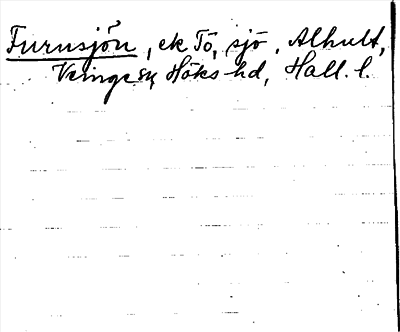 Furusjön, ek Tö, sjö, Alhult,
Veinge sn Höks hd, Hall. l.